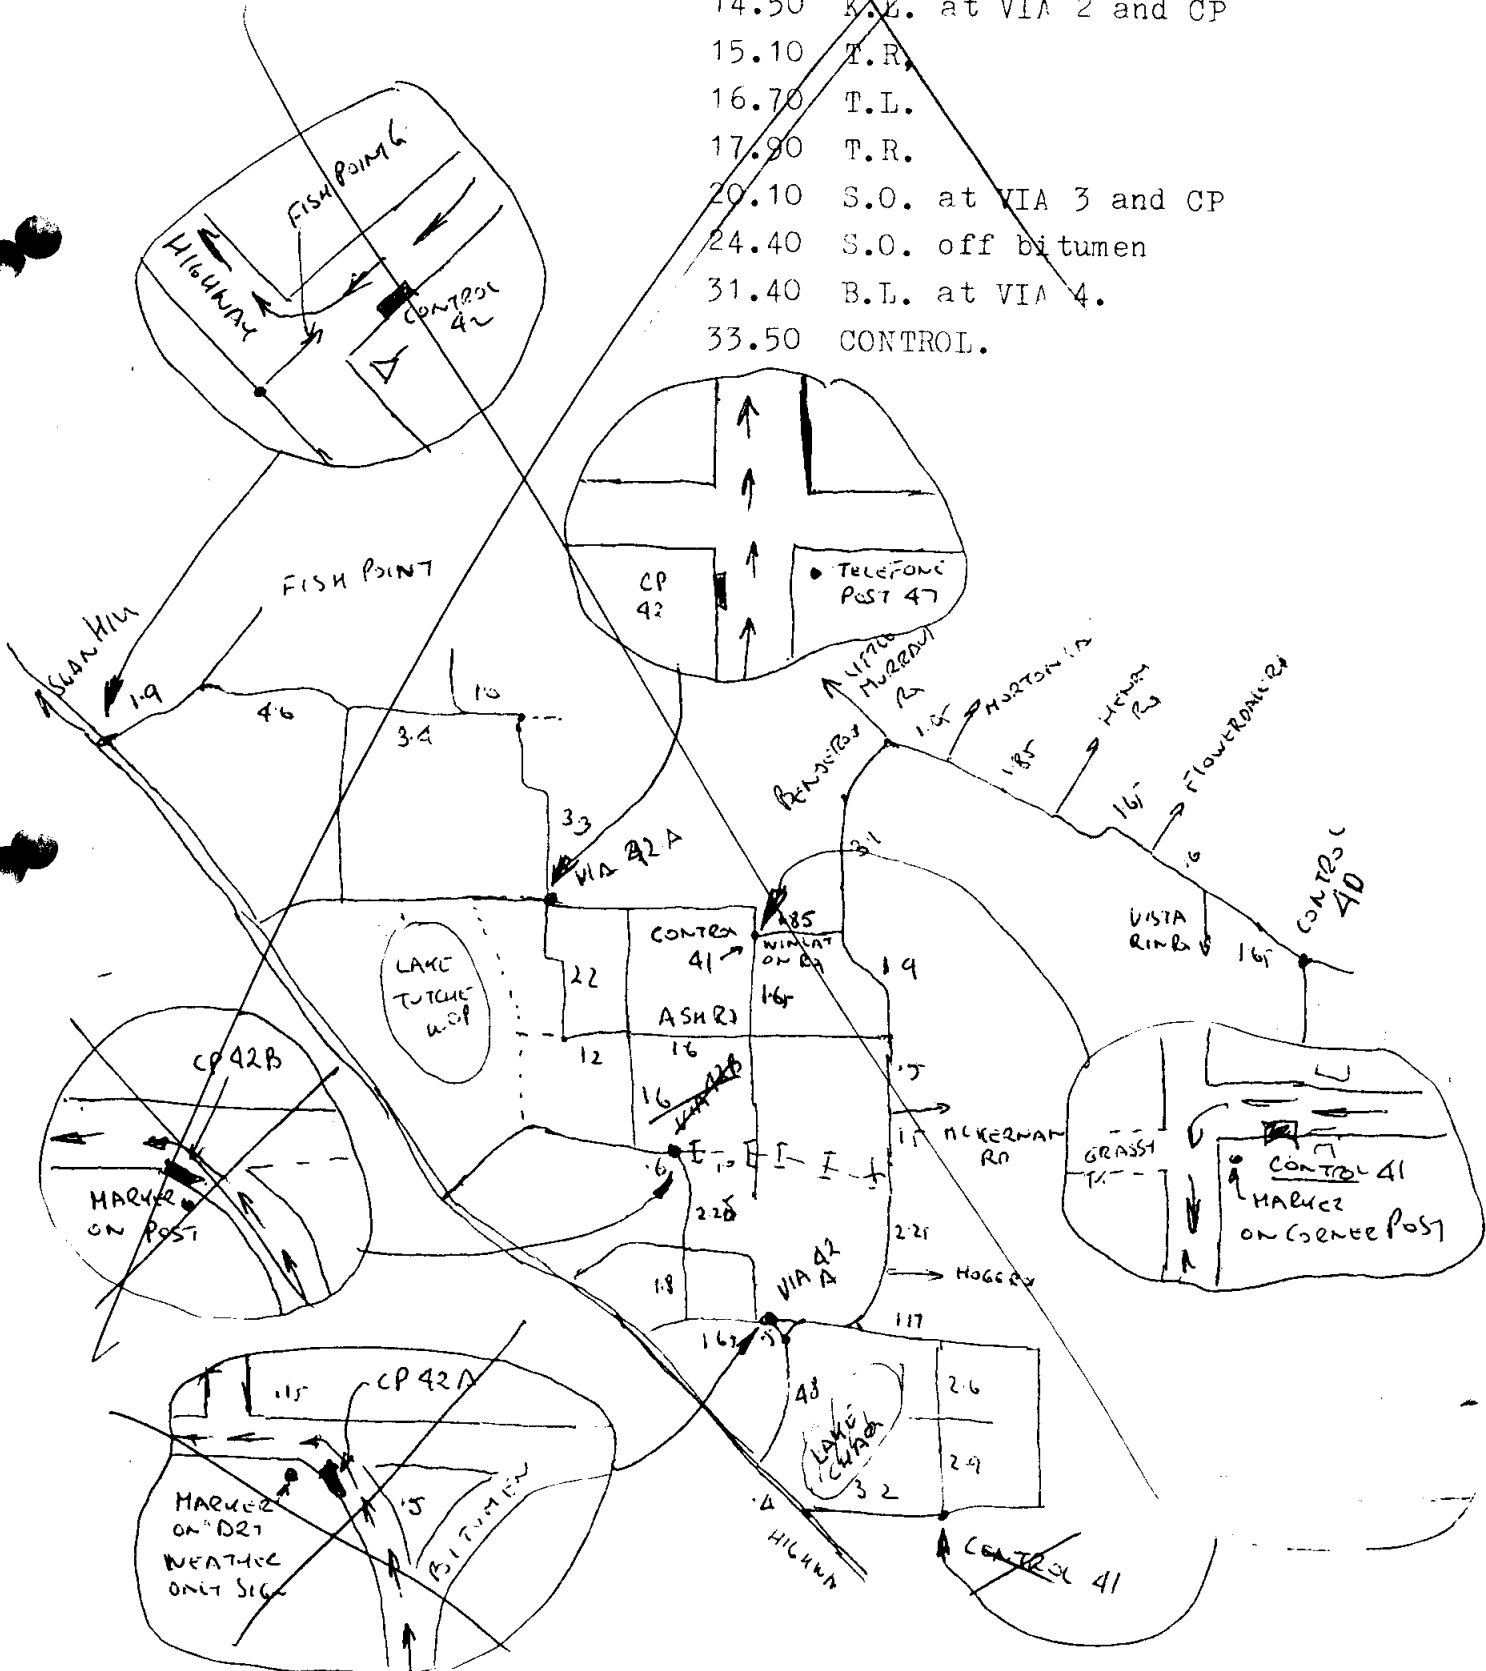 14.50 K.L. at VIA 2 and CP
15.10 T.R.
16.70 T.L.
17.90 T.R.
20.10 S.O. at VIA 3 and CP
24.40 S.O. off bitumen
31.40 B.L. at VIA 4.
33.50 CONTROL.
FISH POINT
HIGHWAY
CONTROL
42
CP
42
TELEFONE
POST 47
FISH POINT
SWAN HILL
1.9
4.6
3.4
1.0
3.3
VIA 42A
LITTLE
MURRAY
RD
1.65
MORTON
1.85
HENRY
RD
1.65
FLOWERDALE RD
.6
CONTROL
40
VISTA
RIN RD
1.65
BENJEROOP
3.1
.85
CONTROL
41
WINLAT
ON RD
1.9
1.65
LAKE
TUTCHE
WOP
2.2
ASH RD
1.2
1.6
1.6
VIA 42B
.5
1.5
MCKERNAN
RD
.6
1.0
2.25
2.25
HOGG RD
1.8
VIA 42
A
1.17
1.65
.5
4.8
LAKE
CHARM
2.6
2.9
3.2
.4
HIGHWAY
CONTROL 41
CP 42B
MARKER
ON POST
GRASSY
CONTROL 41
MARKER
ON CORNER POST
.15
CP 42A
MARKER
ON DRY
WEATHER
ONLY SIGN
.5
BITUMEN